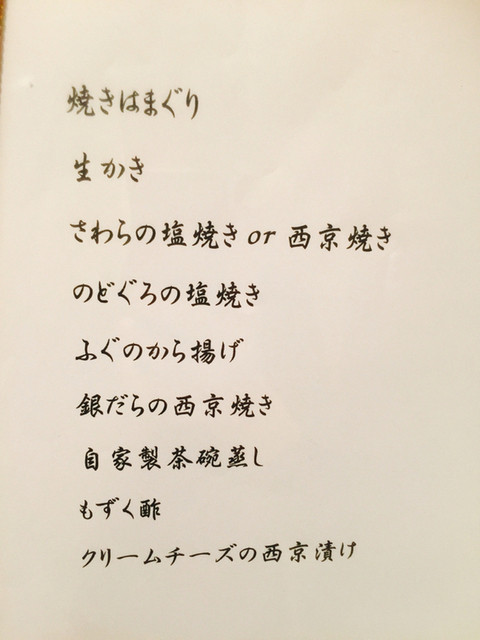 焼きはまぐり
生かき
さわらの塩焼き or 西京焼き
のどぐろの塩焼き
ふぐのから揚げ
銀だらの西京焼き
自家製茶碗蒸し
もずく酢
クリームチーズの西京漬け